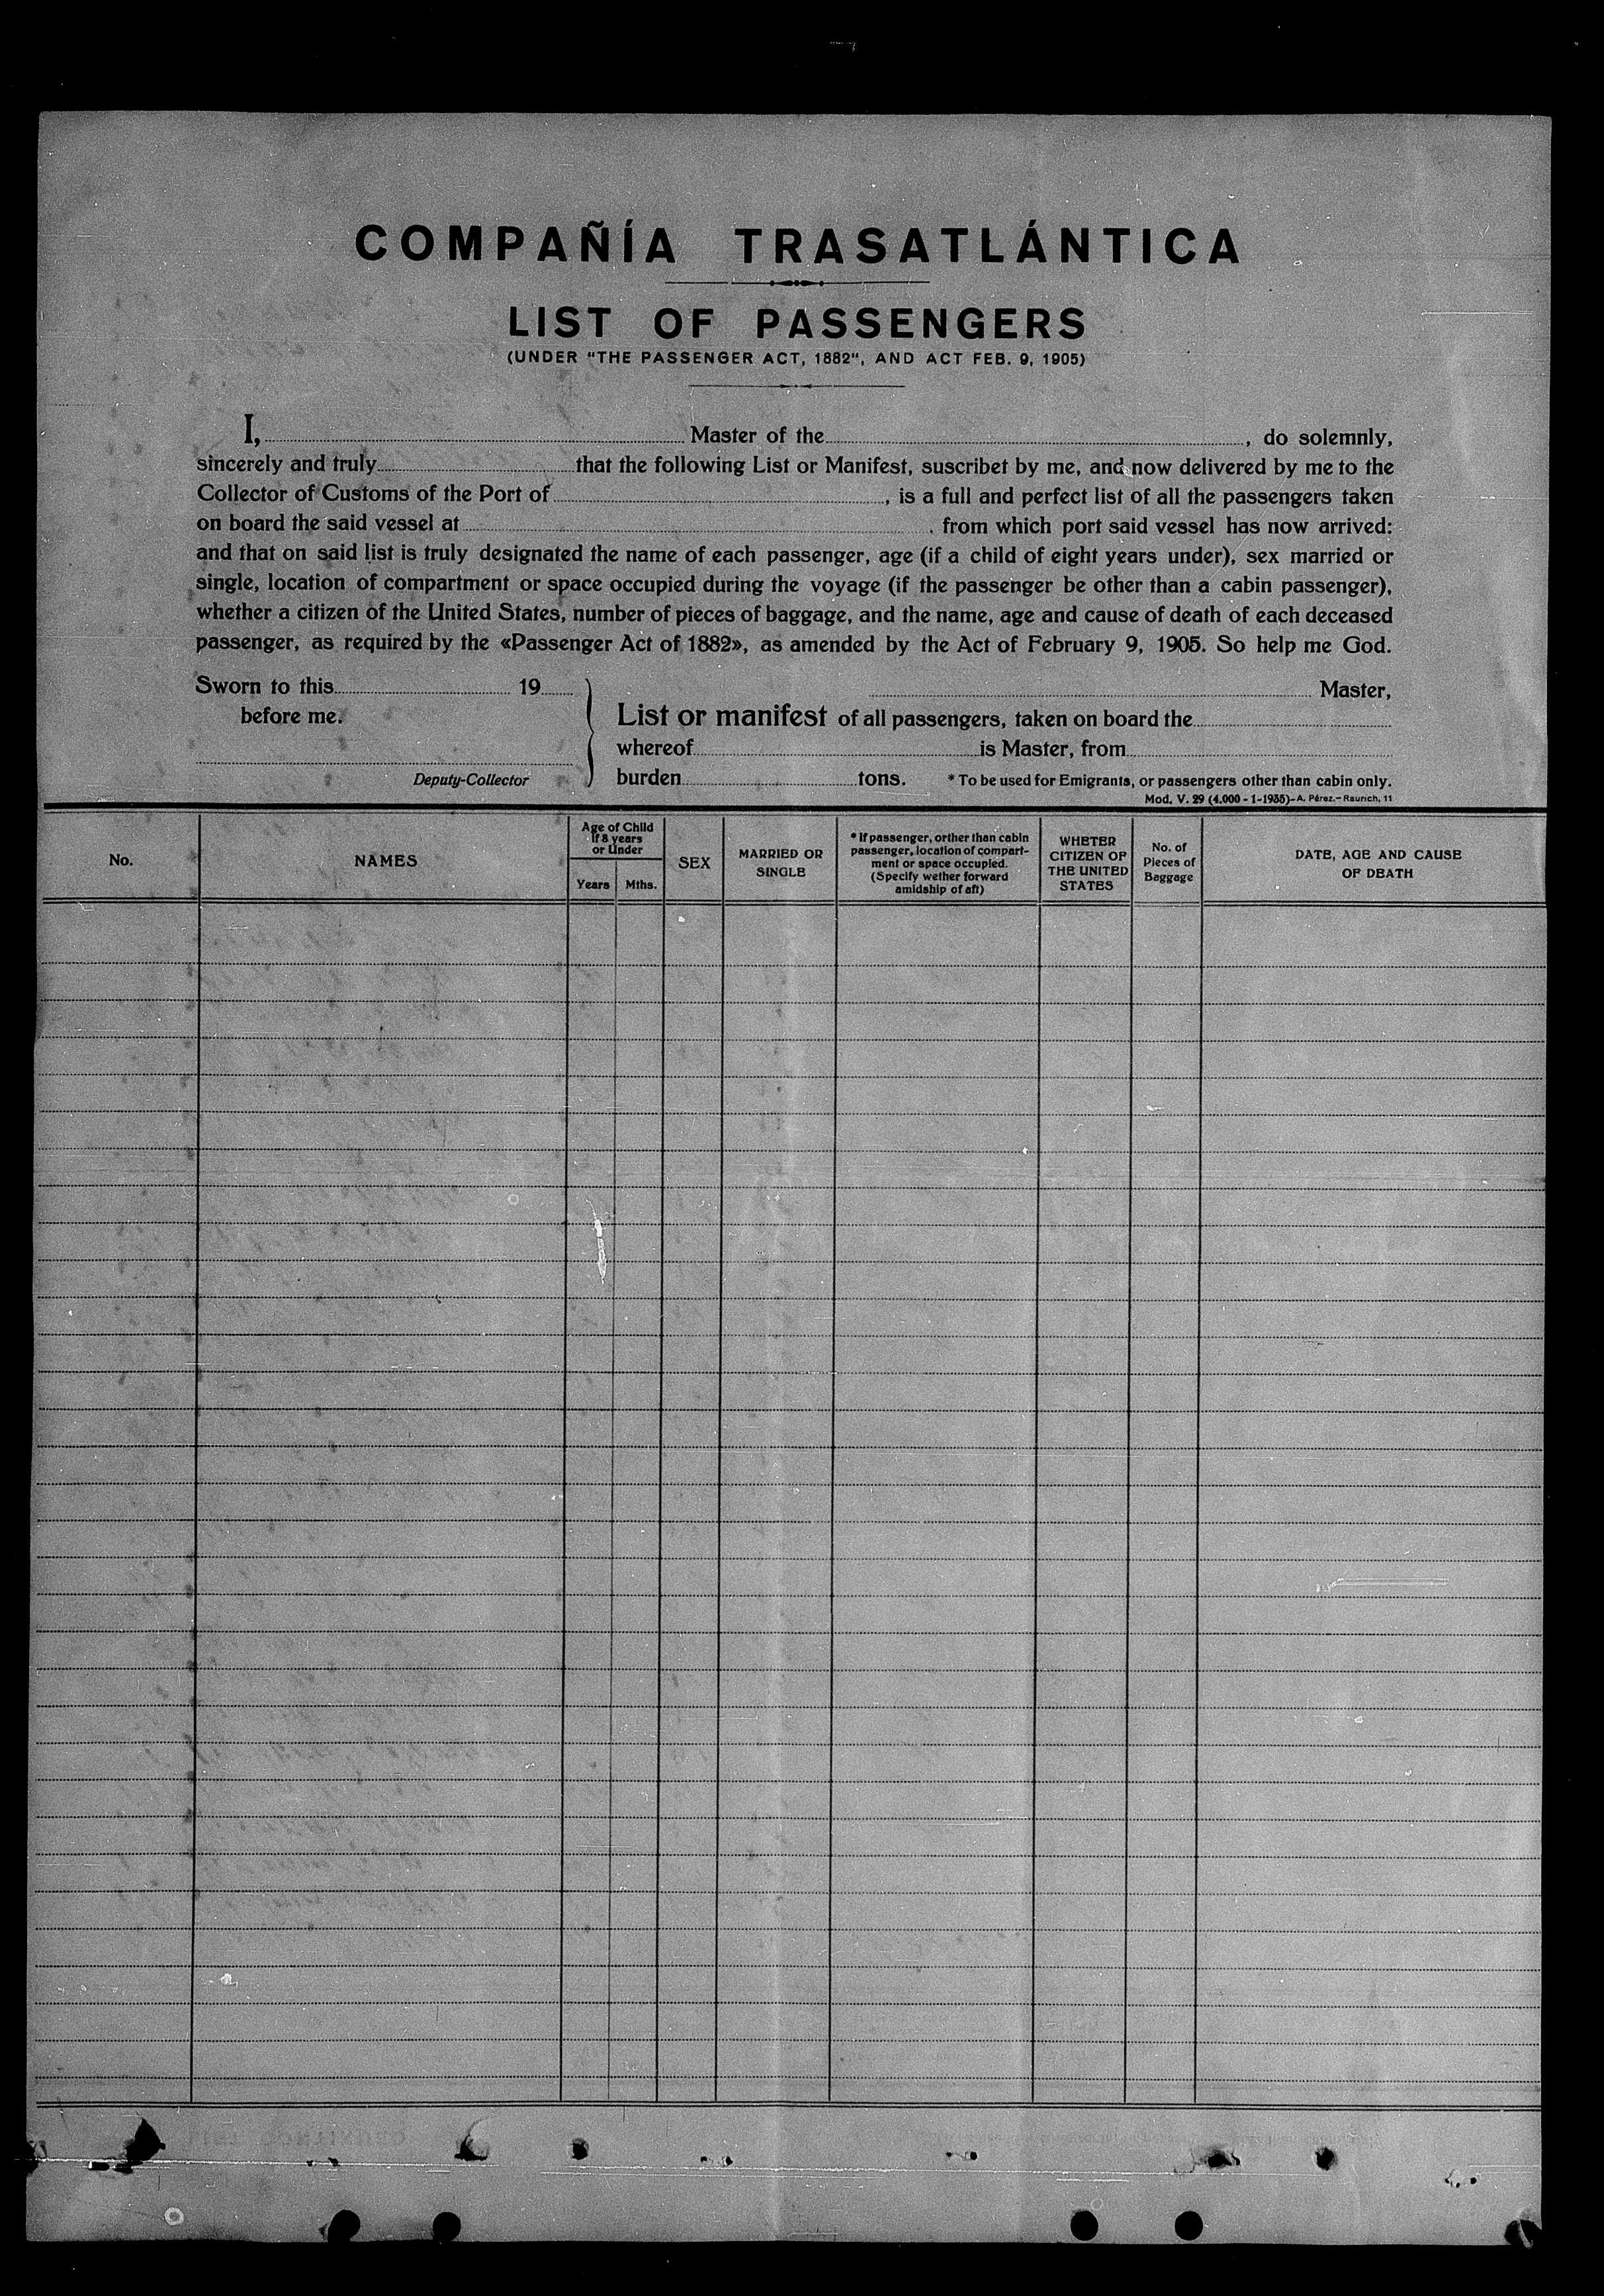 COMPAÑÍA TRASATLÁNTICA
LIST OF PASSENGERS
(UNDER "THE PASSENGER ACT, 1882", AND ACT FEB. 9, 1905)
I, Master of the , do solemnly,
sincerely and truly that the following List or Manifest, suscribet by me, and now delivered by me to the
Collector of Customs of the Port of , is a full and perfect list of all the passengers taken
on board the said vessel at . from which port said vessel has now arrived:
and that on said list is truly designated the name of each passenger, age (if a child of eight years under), sex married or
single, location of compartment or space occupied during the voyage (if the passenger be other than a cabin passenger),
whether a citizen of the United States, number of pieces of baggage, and the name, age and cause of death of each deceased
passenger, as required by the «Passenger Act of 1882», as amended by the Act of February 9, 1905. So help me God.
Sworn to this 19
before me.
Deputy-Collector
Master,
List or manifest of all passengers, taken on board the
whereof is Master, from
burden tons. * To be used for Emigrants, or passengers other than cabin only.
Mod. V. 29 (4.000 - 1-1935)-A. Pérez.- Raurich, 11
No.
NAMES
Age of Child
If 8 years
or Under
Years Mths.
SEX
MARRIED OR
SINGLE
* If passenger, orther than cabin
passenger, location of compart-
ment or space occupied.
(Specify wether forward
amidship of aft)
WHETER
CITIZEN OF
THE UNITED
STATES
No. of
Pieces of
Baggage
DATE, AGE AND CAUSE
OF DEATH